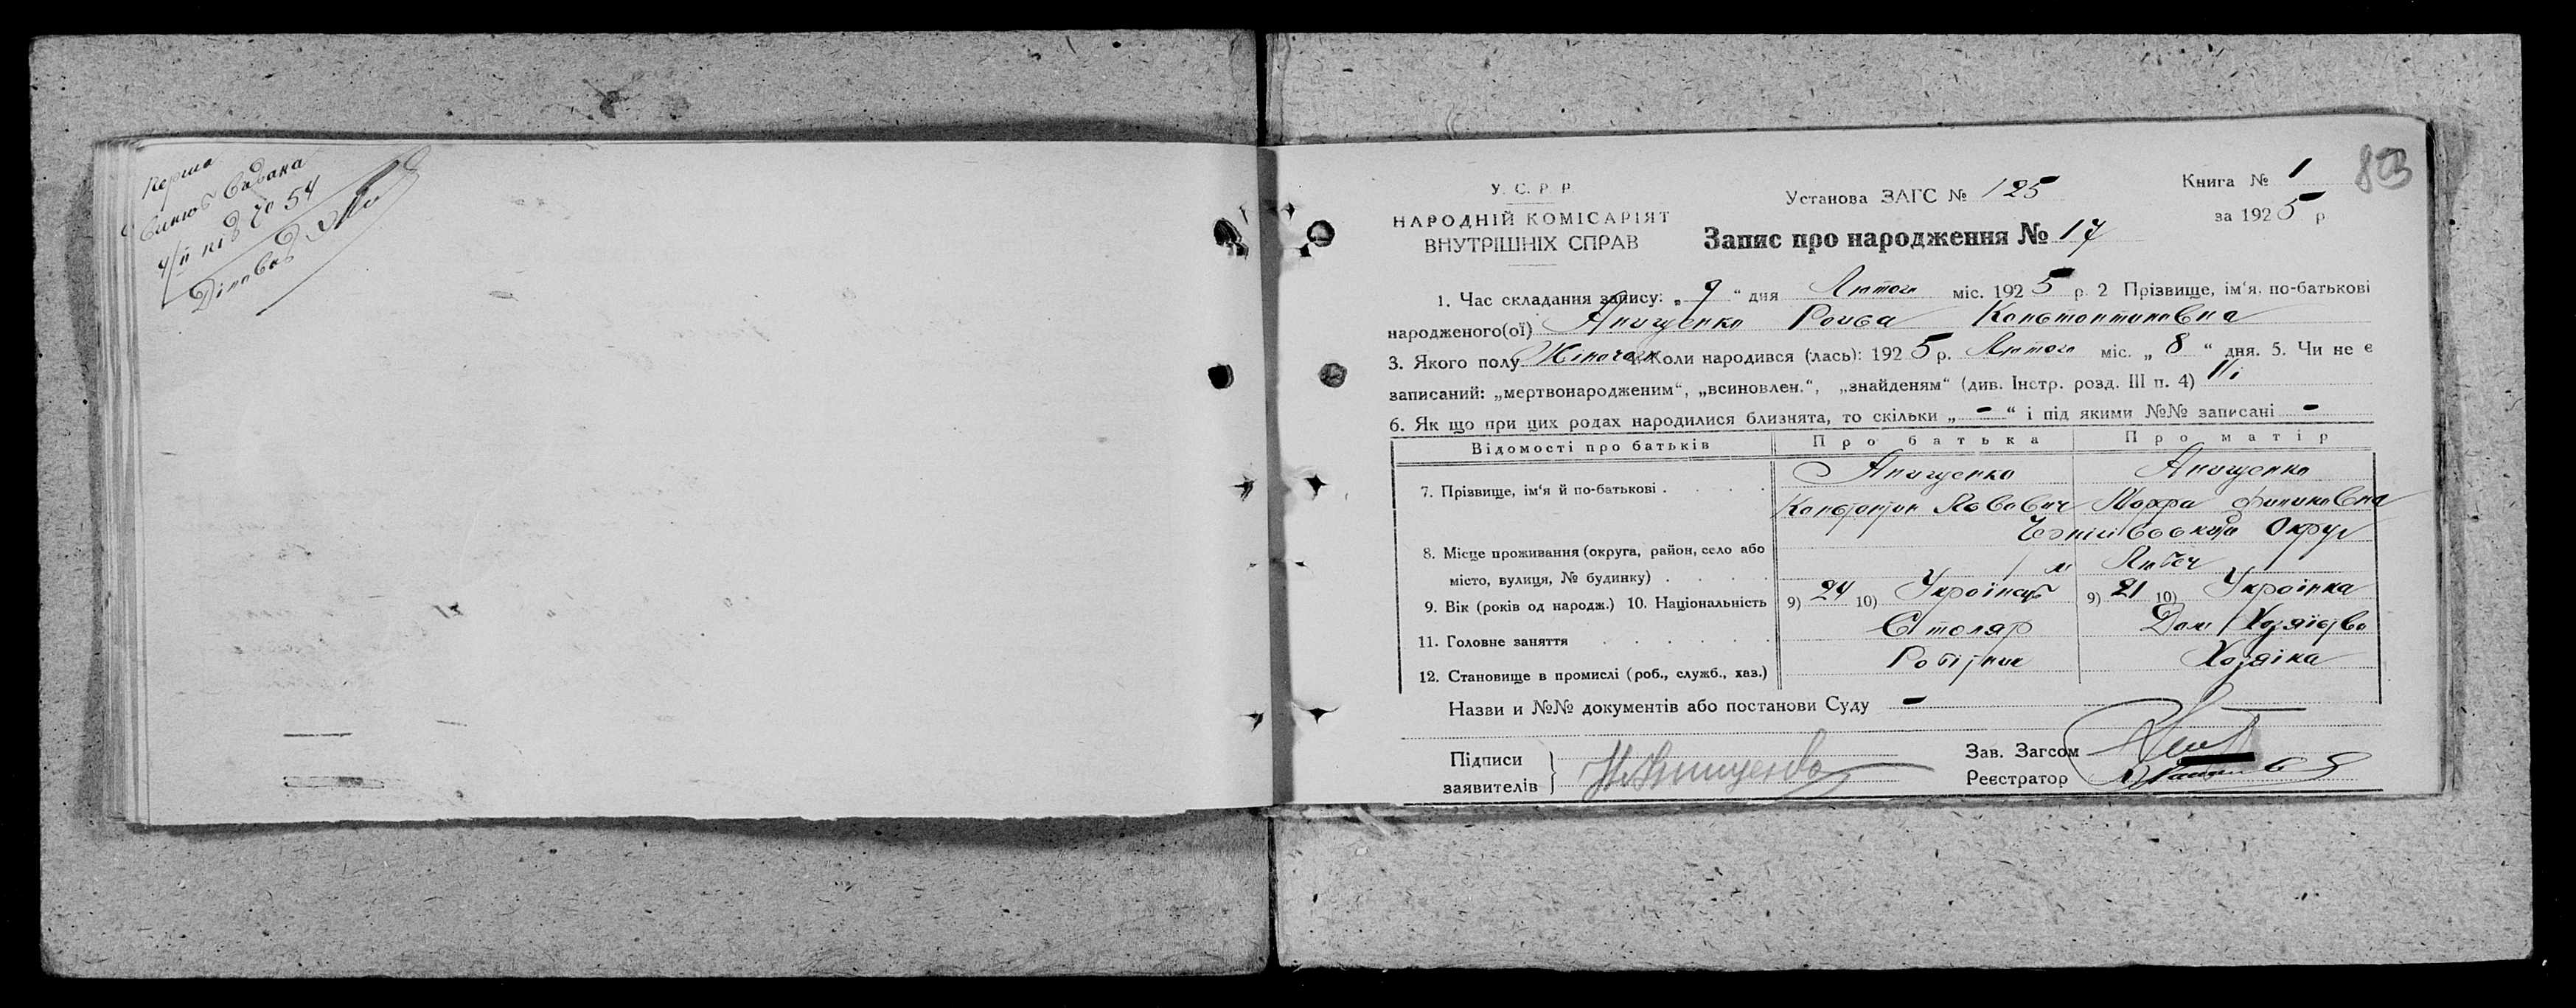 Перша
Випись видана
ч/п під № 54
Діловод
У. С. Р. Р.
НАРОДНІЙ КОМІСАРІЯТ
ВНУТРІШНІХ СПРАВ
Установа ЗАГС № 125
Книга № 1
за 1925 р
Запис про народження № 17
1. Час складання запису: „ 9 “ дня Лютого міс. 1925 р. 2 Прізвище, ім‘я. по-батькові
народженого(ої) Анищенко Константиновна
3. Якого полу Жіночого 4. Коли народився (лась): 1925 р. Лютого міс. „ 8 “ дня. 5. Чи не є
записаний: „мертвонародженим“, „всиновлен.“, „знайденям“ (див. Інстр. розд. III п. 4) Ні
6. Як що при цих родах народилися близнята, то скільки „ - “ і під якими №№ записані -
Відомості про батьків Про батька Про матір
7. Прізвище, ім‘я й по-батькові . Анищенко Анищенко
Константин Мотра
8. Місце проживання (округа, район, село або місто, вулиця, № будинку) . Чернігівської Округи
м Любеч
9. Вік (років од народж.) 10. Національність 9) 24 10) Українець 9) 21 10) Українка
11. Головне заняття Столяр Дом Хозяїство
12. Становище в промислі (роб., служб., хаз.) Робітник Хозяіка
Назви и №№ документів або постанови Суду -
Підписи
заявителів } Анищенко
Зав. Загсом
Реєстратор